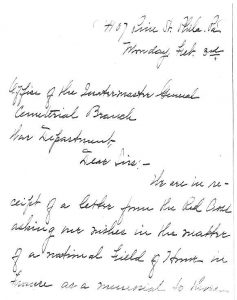 Pine St. Phila. Pa
Monday Feb. 3rd
Office of the Quartermaster General
Cemeterial Branch
War Department,
Dear Sirs:-
We are in re-
ceipt of a letter from the Red Cross
asking our wishes in the matter
of a national Field of Honor in
France as a memorial to those